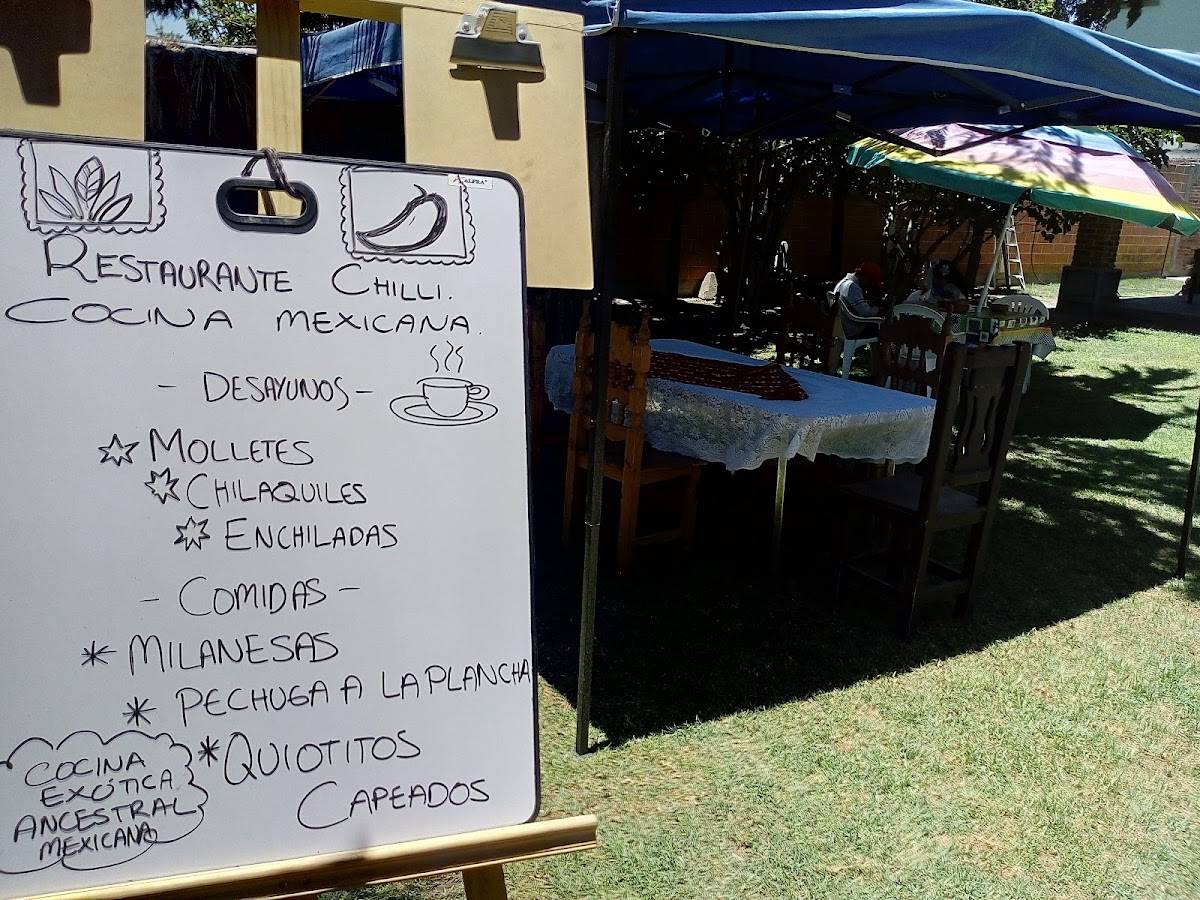 RESTAURANTE CHILLI.
COCINA MEXICANA.
- DESAYUNOS -
MOLLETES
CHILAQUILES
ENCHILADAS
- COMIDAS -
* MILANESAS
* PECHUGA A LA PLANCHA
* QUIOTITOS
CAPEADOS
COCINA
EXÓTICA
ANCESTRAL
MEXICANA